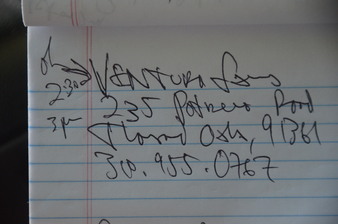 VENTURA Farms
230 235 Potrero Road
Thousand Oaks, 91361
310.955.0767